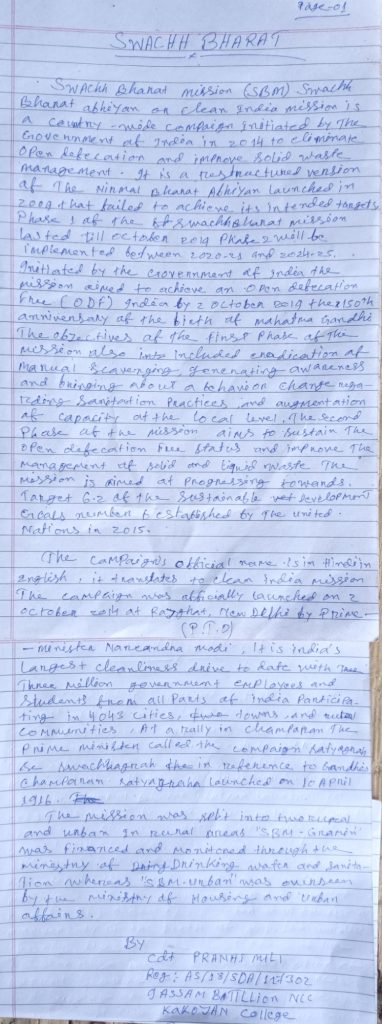 Page-01
SWACHH BHARAT
Swachh Bharat mission (SBM) Swachh
Bharat abhiyan or clean India mission is
a country-wide campaign initiated by The
Government of India in 2014 to eliminate
open defecation and improve solid waste
management. It is a restructured version
of The Nirmal Bharat Abhiyan launched in
2009 that failed to achieve its intended targets
Phase 1 of the Swachh Bharat mission
lasted till october 2019 Phase 2 will be
implemented between 2020-21 and 2024-25.
Initiated by the Government of India the
mission aimed to achieve an open defecation
Free (ODF) India by 2 October 2019 the 150th
anniversary of the birth of mahatma Gandhi
The objectives of the first Phase of The
mission also included eradication of
manual scavenging, generating awareness
and bringing about a behavior change rega-
rding Sanitation Practices and augmentation
of capacity at the local level. The second
Phase of the mission aims to Sustain The
open defecation Free status and improve The
management of solid and liquid waste The
mission is aimed at Progressing towards.
Target 6.2 of the Sustainable development
Goals number 6 established by The united
Nations in 2015.
The campaign's official name is in Hindi in
english, it translates to clean India mission
The campaign was officially launched on 2
october 2014 at Rajghat, New Delhi by Prime-
(P.T.O)
- minister Narendra modi, It is india's
Largest cleanliness drive to date with
Three million government employees and
Students from all Parts of India Participa-
ting in 4043 cities, towns, and rural
communities, At a rally in champaran The
Prime minister called the campaign Satyagrah
se Swachhagrah in reference to Gandhi's
Champaran Satyagraha launched on 10 APRIL
1916.
The mission was split into two rural
and urban In rural areas "SBM-Gramin"
was Financed and monitored through the
ministry of Drinking water and Sanita-
tion whereas "SBM-urban" was overseen
by the ministry of Housing and urban
affairs.
By
Cdt PRANAB MILI
Reg: AS/18/SDA/117302
ASSAM BATTLLION NCC
KAKOJAN College